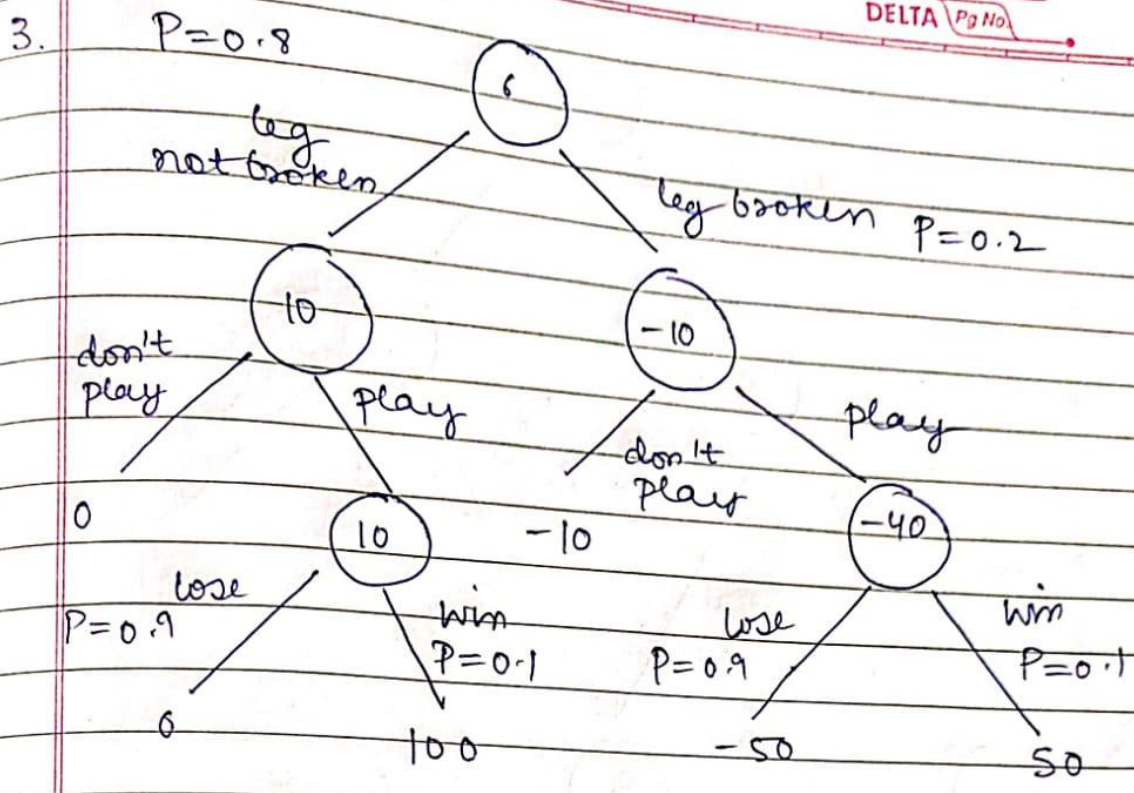 DELTA Pg No.
3.
P=0.8
6
leg
not broken
leg broken P=0.2
10
-10
don't
play
play
don't
play
play
0
10
-10
-40
lose
P=0.9
win
P=0.1
lose
P=0.9
win
P=0.1
0
100
-50
50